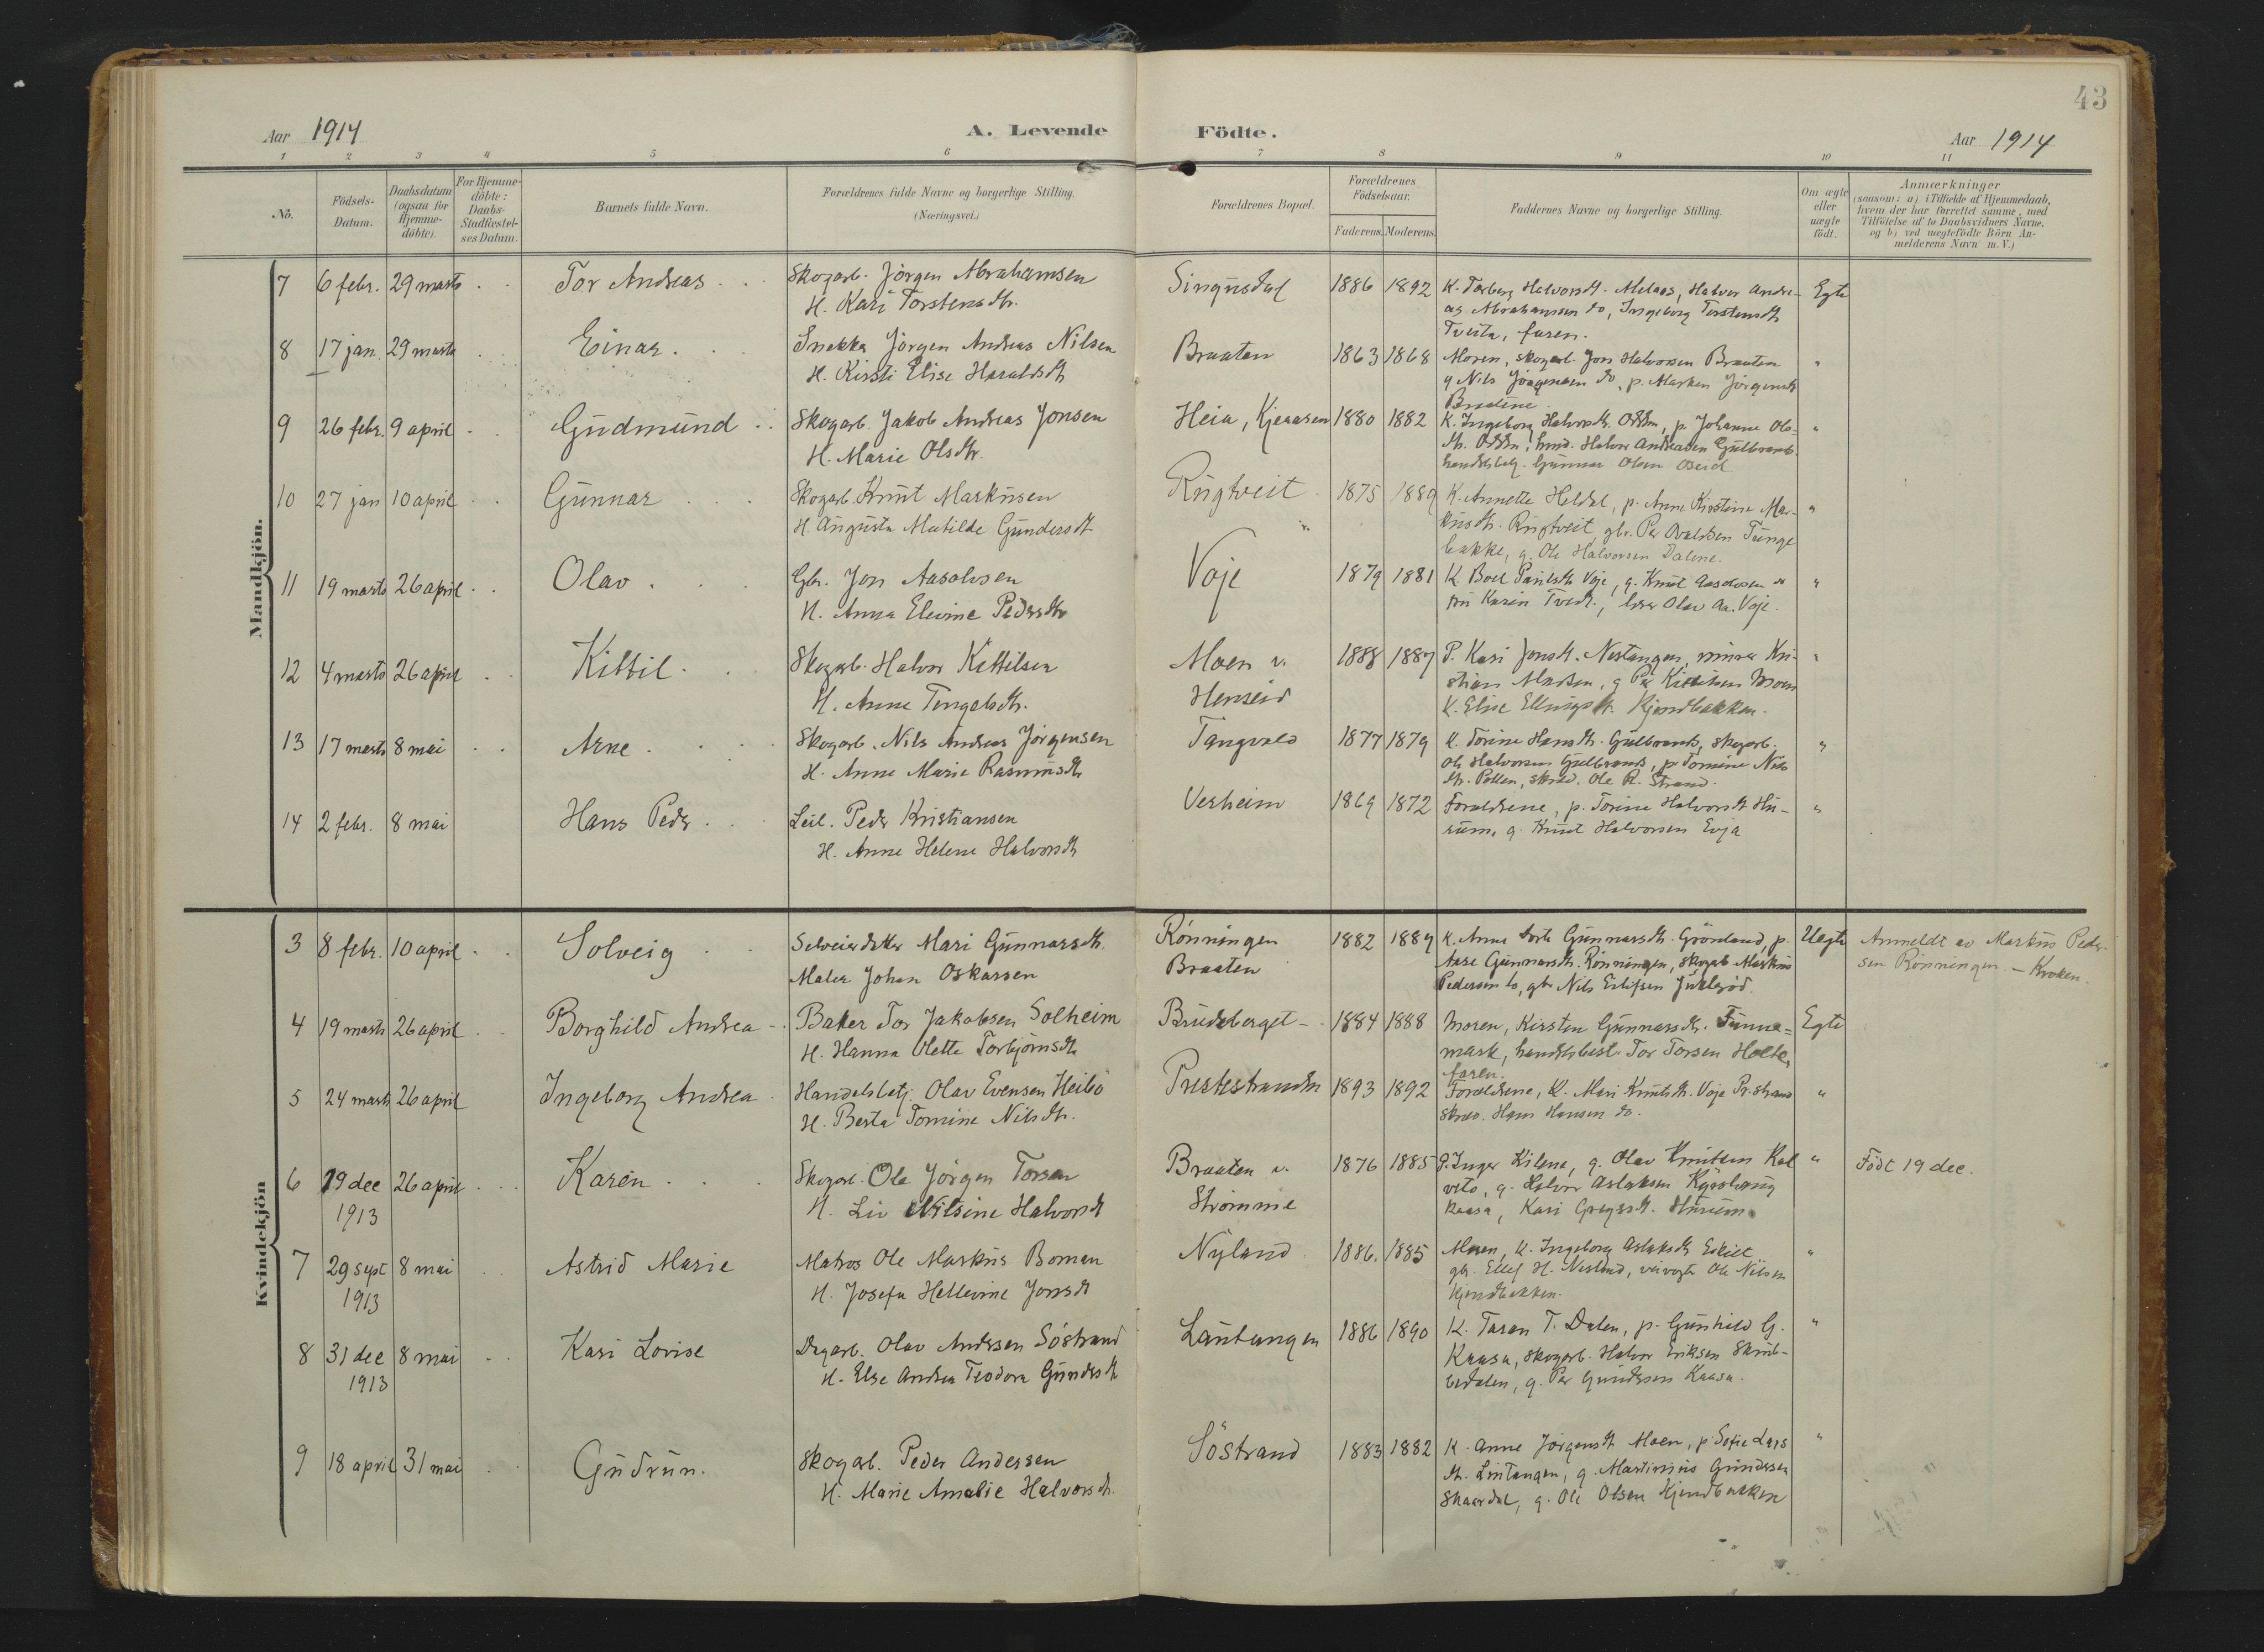 43
Aar 1914
A. Levende Födte.
Aar 1914
1 2 3 4 5 6 7 8 9 10 11
No.
Födsels-
Datum.
Daabsdatum
(ogsaa for
Hjemme-
döbte).
For Hjemme-
döbte:
Daabs-
Stadfæstel-
ses Datum.
Barnets fulde Navn.
Forældrenes fulde Navne og borgerlige Stilling.
(Næringsvei.)
Forældrenes Bopæl.
Forældrenes
Födselsaar.
Faderens. Moderens.
Faddernes Navne og borgerlige Stilling.
Om ægte
eller
uægte
født.
Anmærkninger
(saasom: a) i Tilfælde af Hjemmedaab,
hvem der har forrettet samme, med
Tilföielse af to Daabsvidners Navne,
og b) ved uægtefödte Börn An-
melderens Navn m. V.)
Mandkjön.
7 6 febr. 29 marts Tor Andreas Skogarb. Jørgen Abrahamsen
H. Kari Torstensdtr.
Singusdal 1886 1892 K. Torborg Halvorsdt. Melaas, Halvor Andre-
as Abrahamsen do, Ingeborg Torstensdt
Tveita, faren.
Egte
8 17 jan. 29 marts Einar Snekker Jørgen Andreas Nilsen
H. Kirsti Elise Haraldsdt
Braaten 1863 1868 Moren, skogarb. Jon Halvorsen Braaten
g Nils Jørgensen do, p. Maren Jørgensdt
Braatene "
9 26 febr. 9 april Gudmund Skogarb. Jakob Andreas Jonsen
H. Marie Olsdtr.
Heia, Kjeaasen 1880 1882 K. Ingeborg Halvorsdt. Odden, p. Johanne Ols-
dtr. Odden, hmd. Halvor Andreasen Gulbrands.
handelsbetj. Gunnar Olsen Oseid "
10 27 jan 10 april Gunnar Skogarb. Knut Markusen
H. Augusta Matilde Gundersdt
Rugtveit 1875 1889 K. Annette Heldal, p. Anne Kirstine Mar-
kusdtr. Rugtveit, gbr. Per Tunge
bakke, g. Ole Halvorsen Dalene. "
11 19 marts 26 april Olav Gbr. Jon Aasolvsen
H. Anna Elevine Pedersdtr
Voje 1879 1881 K. Boel Paulsdtr Voje, g. Knut Aasolvsen do
fru Karin Tvedt., lærer Olav Aa. Voje. "
12 4 marts 26 april Kittil Skogarb. Halvor Kittilsen
H. Anne Tengelsdtr.
Moen v.
Henseid
1888 1887 P. Kari Jonsdt. Nestangen, murer Kri-
stian Madsen, g Per Moen
K. Elise Ellingsdtr. Kjendbakken. "
13 17 marts 8 mai Arne Skogarb. Nils Andreas Jørgensen
H. Anne Marie Rasmusdtr
Tangvald 1877 1879 K. Torine Hansdtr. Gulbrands, skogarb.
Ole Halvorsen Gulbrands, p. Tomine Nils
dtr. Pollen, skred. Ole R. Strand. "
14 2 febr. 8 mai Hans Peder Leil. Peder Kristiansen
H. Anne Helene Halvorsdt
Vesheim 1869 1872 Forældrene, p. Torine Halvorsdt Hu-
rum, g. Knut Halvorsen Evja "
Kvindekjön
3 8 febr. 10 april Solveig Selveierdatter Mari Gunnarsdtr.
Maler Johan Oskarsen
Rønningen
Braaten
1882 1889 K. Anne Dorte Gunnarsdt. Grönland, p.
Aase Gunnarsdt. Rønningen, skogarb Markus
Pedersen do, gbr Nils Julsrød.
Uegte Anmeldt av Markus Peder-
sen Rønningen. — Kroken.
4 19 marts 26 april Borghild Andrea Baker Tor Jakobsen Solheim
H. Hanna Olette Torbjørnsdtr
Brudeberget 1884 1888 Moren, Kirsten Gunnarsdtr. Funne-
mark, handelsbest. Tor Torsen Holte,
faren.
Egte
5 24 marts 26 april Ingeborg Andrea Handelsbetj. Olav Evensen Heibø
H. Berta Tomine Nilsdtr.
Prestestranden 1893 1892 Forældrene, K. Mari Knutsdtr. Voje Pr.strand
skred. Hans Hansen do. "
6 19 dec 26 april
1913
Karen Skogarb. Ole Jørgen Torsen
H. Liv Nilsine Halvorsdt
Braaten v.
Strømme
1876 1885 P. Inger Kilene, g. Olav Knutsen Kal
veto, g. Halvor Aslaksen
Kaasa, Kari Gregersdt. Hurum. " Født 19 dec.
7 29 sept 8 mai
1913
Astrid Marie Matros Ole Markus Boman
H. Josefa Hellevine Jonsdt
Nyland 1886. 1885 Moren, K. Ingeborg Aslaksdtr Eskilt
gbr. Ellef H. Nesland, veivogter Ole Nilsen
Kjendbakken. "
8 31 dec 8 mai
1913
Kari Lovise Dagarb. Olav Andersen Söstrand
H. Else Andrea Teodora Gundersdt
Lauvtangen 1886 1890 K. Taran T. Dalen, p. Gunhild G.
Kaasa, skogarb. Halvor Eriksen Skrub-
bedalen, g. Per Gundersen Kaasa. "
9 18 april 31 mai Gudrun. Skogarb. Peder Andersen
H. Marie Amalie Halvorsdt.
Söstrand 1883 1882 K. Anne Jørgensdt Moen, p. Sofie Lars
dtr. Lintangen, g. Martinius Gundersen
Skaardal, g. Ole Olsen Kjendbakken "